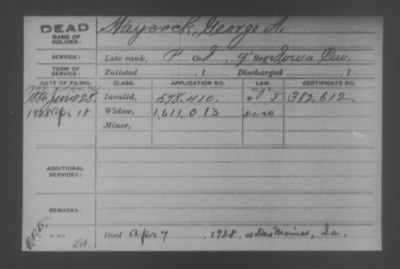 DEAD
NAME OF SOLDIER: Haycock, George A.
SERVICE: Late rank, P Co. I, 9" Reg't Iowa Cav.
TERM OF SERVICE: Enlisted , 1 Discharged , 1
DATE OF FILING. CLASS. APPLICATION NO. LAW. CERTIFICATE NO.
June 28, Invalid, 598.410. 382.612.
1928 Apr 18 Widow, 1,611,013
Minor,
ADDITIONAL SERVICES:
REMARKS:
Died Apr 7, 1928, at Des Moines, Ia.